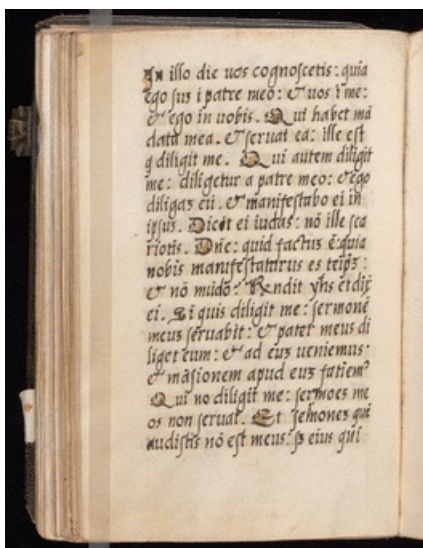 In illo die uos cognoscetis: quia
ego sus i patre meo: & uos i me:
& ego in uobis. Qui habet mā
data mea. & seruat ea: ille est
q̄ diligit me. Qui autem diligit
me: diligetur a patre meo: & ego
diligaʒ eū. & manifestabo ei in
ipsus. Dicit ei iudas: nō ille sca
riotis. Dn̄e: quid factus ē: quia
nobis manifestaturus es teip̄ʒ:
& nō mūdo? Rn̄dit yh̄s et dix̄
ei. Si quis diligit me: sermonē
meuʒ seruabit: & pater meus di
liget eum: & ad euʒ ueniemus.
& māsionem apud euʒ fatiem?
Qui no diligit me: sermoes me
os non seruat. Et semoneʒ quē
audistis nō est meus: sʒ eius qui